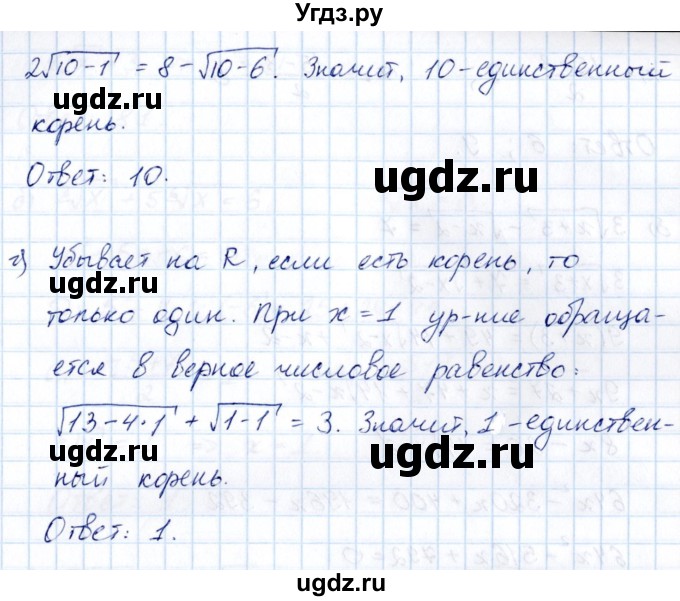 Угдз.ру
2√10-1 = 8 - √10-6. Значит, 10-единственный
ugdz.ru ugdz.ru
корень.
Ответ: 10.
ugdz.ru
г) Убывает на R, если есть корень, то
ugdz.ru ugdz.ru
только один. При x=1 ур-ние обраща-
ется в верное числовое равенство:
ugdz.ru
√13-4·1 + √1-1 = 3. Значит, 1 -единствен-
ugdz.ru ugdz.ru
ный корень.
Ответ: 1.
ugdz.ru
ugdz.ru